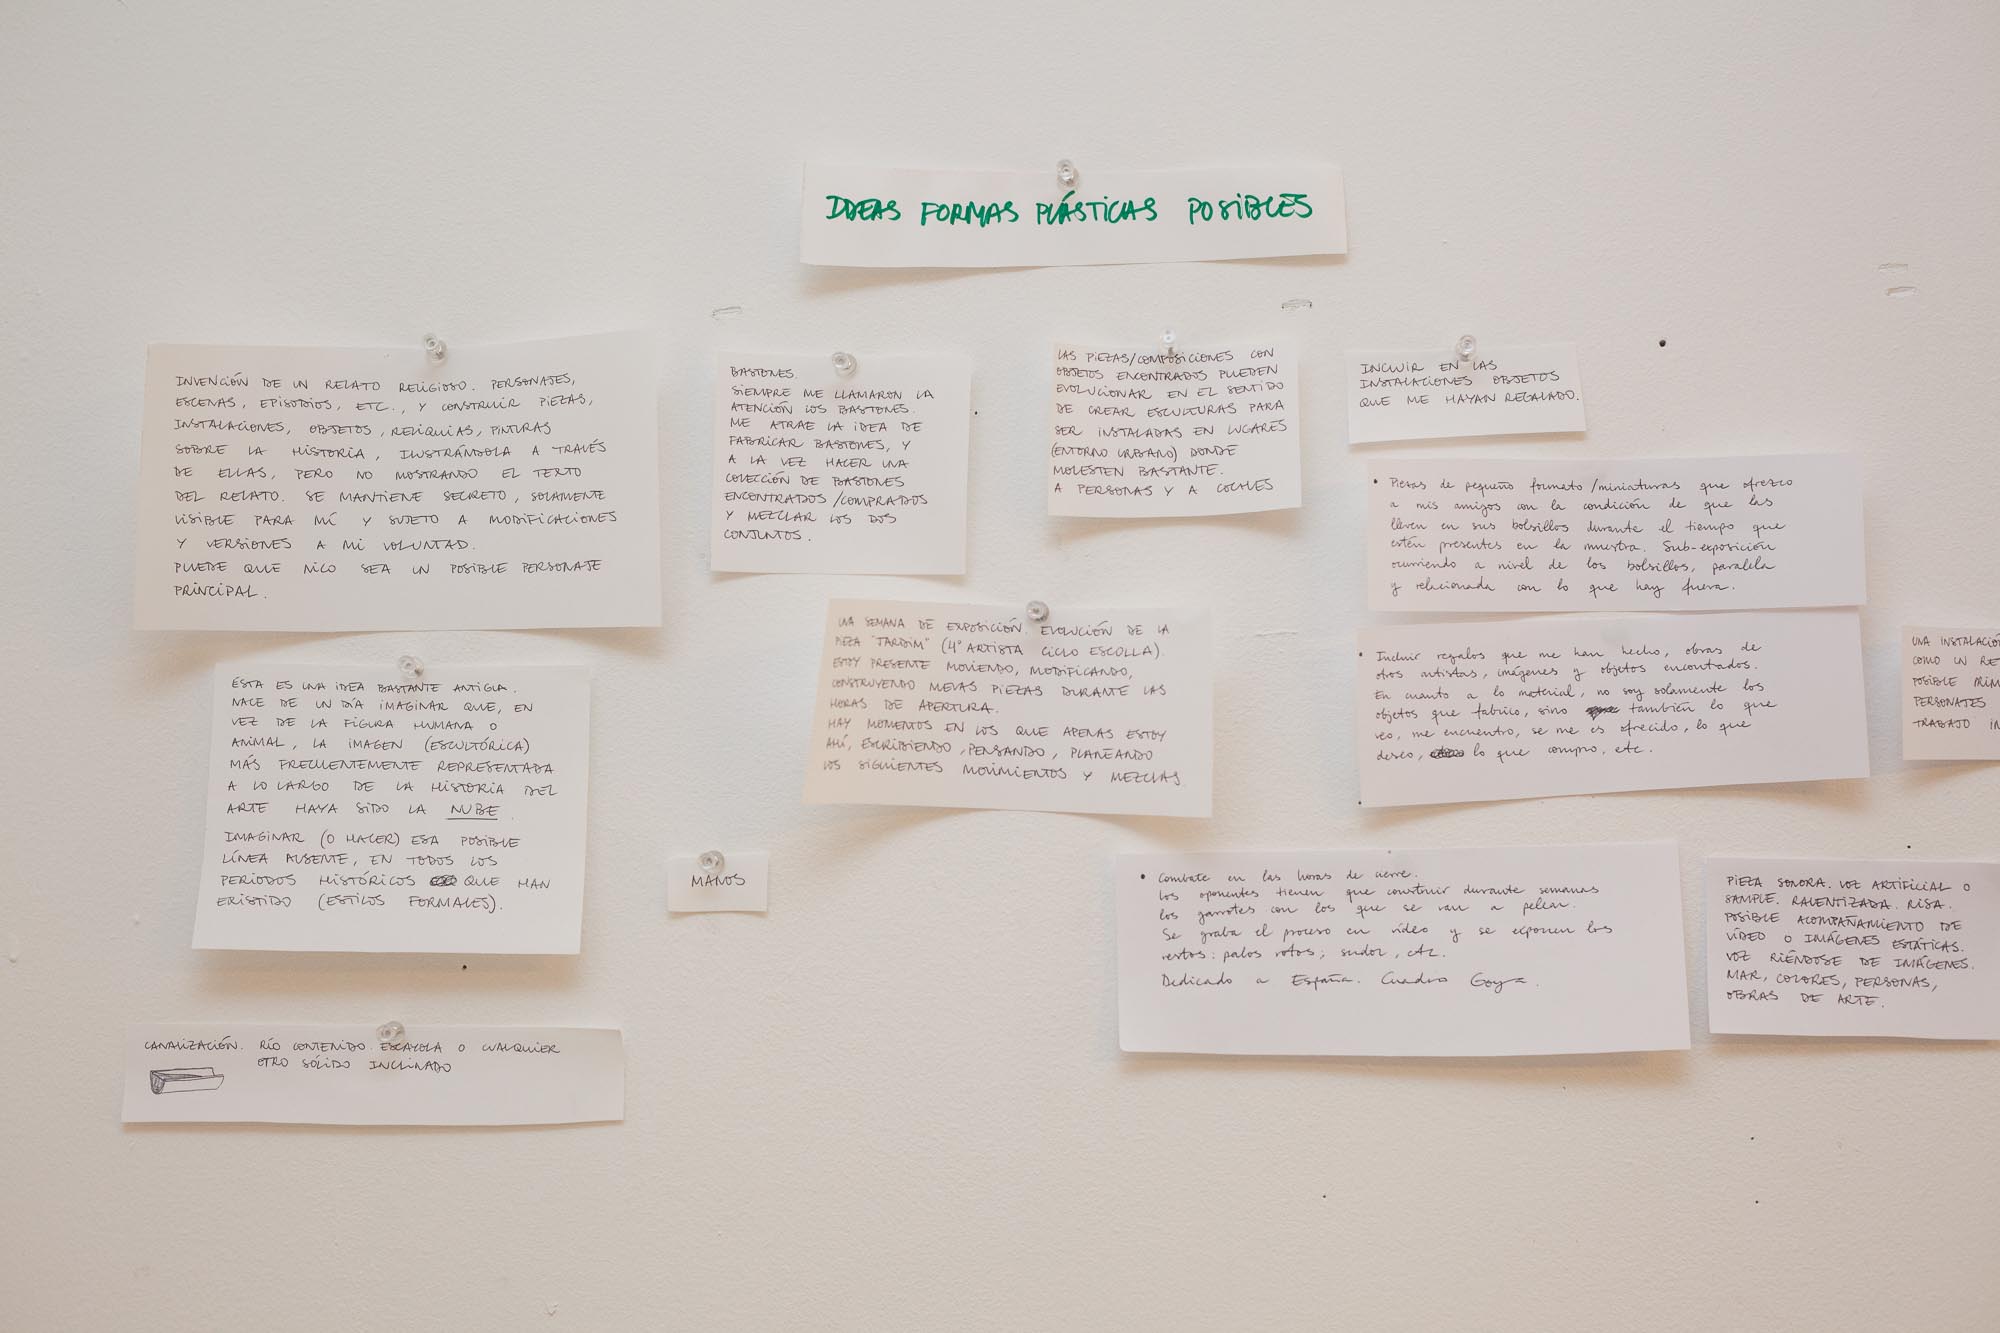 IDEAS FORMAS PLÁSTICAS POSIBLES
INVENCIÓN DE UN RELATO RELIGIOSO. PERSONAJES,
ESCENAS, EPISODIOS, ETC., Y CONSTRUIR PIEZAS,
INSTALACIONES, OBJETOS, RELIQUIAS, PINTURAS
SOBRE LA HISTORIA, ILUSTRÁNDOLA A TRAVÉS
DE ELLAS, PERO NO MOSTRANDO EL TEXTO
DEL RELATO. SE MANTIENE SECRETO, SOLAMENTE
VISIBLE PARA MÍ Y SUJETO A MODIFICACIONES
Y VERSIONES A MI VOLUNTAD.
PUEDE QUE NICO SEA UN POSIBLE PERSONAJE
PRINCIPAL.
BASTONES.
SIEMPRE ME LLAMARON LA
ATENCIÓN LOS BASTONES.
ME ATRAE LA IDEA DE
FABRICAR BASTONES, Y
A LA VEZ HACER UNA
COLECCIÓN DE BASTONES
ENCONTRADOS/COMPRADOS
Y MEZCLAR LOS DOS
CONJUNTOS.
LAS PIEZAS/COMPOSICIONES CON
OBJETOS ENCONTRADOS PUEDEN
EVOLUCIONAR EN EL SENTIDO
DE CREAR ESCULTURAS PARA
SER INSTALADAS EN LUGARES
(ENTORNO URBANO) DONDE
MOLESTEN BASTANTE.
A PERSONAS Y A COCHES
INCLUIR EN LAS
INSTALACIONES OBJETOS
QUE ME HAYAN REGALADO.
• Piezas de pequeño formato/miniaturas que ofrezco
a mis amigos con la condición de que las
lleven en sus bolsillos durante el tiempo que
estén presentes en la muestra. Sub-exposición
ocurriendo a nivel de los bolsillos, paralela
y relacionada con lo que hay fuera.
• Incluir regalos que me han hecho, obras de
otros artistas, imágenes y objetos encontrados.
En cuanto a lo material, no soy solamente los
objetos que fabrico, sino también lo que
veo, me encuentro, se me es ofrecido, lo que
deseo, lo que compro, etc.
UNA INSTALACIÓ
COMO UN RE
POSIBLE PRIM
PERSONAJES
TRABAJO IN
ÉSTA ES UNA IDEA BASTANTE ANTIGUA.
NACE DE UN DÍA IMAGINAR QUE, EN
VEZ DE LA FIGURA HUMANA O
ANIMAL, LA IMAGEN (ESCULTÓRICA)
MÁS FRECUENTEMENTE REPRESENTADA
A LO LARGO DE LA HISTORIA DEL
ARTE HAYA SIDO LA NUBE.
IMAGINAR (O HACER) ESA POSIBLE
LÍNEA AUSENTE, EN TODOS LOS
PERIODOS HISTÓRICOS QUE HAN
EXISTIDO (ESTILOS FORMALES).
UNA SEMANA DE EXPOSICIÓN. EVOLUCIÓN DE LA
PIEZA "JARDIM" (4º ARTISTA CICLO ESCOLLA).
ESTOY PRESENTE MOVIENDO, MODIFICANDO,
CONSTRUYENDO NUEVAS PIEZAS DURANTE LAS
HORAS DE APERTURA.
HAY MOMENTOS EN LOS QUE APENAS ESTOY
AHÍ, ESCRIBIENDO, PENSANDO, PLANEANDO
LOS SIGUIENTES MOVIMIENTOS Y MEZCLAS
MANOS
• Combate en las horas de cierre.
Los oponentes tienen que construir durante semanas
los garrotes con los que se van a pelear.
Se graba el proceso en vídeo y se exponen los
restos: palos rotos, sudor, etc.
Dedicado a España. Cuadro Goya.
PIEZA SONORA. VOZ ARTIFICIAL O
SAMPLE. RALENTIZADA. RISA.
POSIBLE ACOMPAÑAMIENTO DE
VÍDEO O IMÁGENES ESTÁTICAS.
VOZ RIÉNDOSE DE IMÁGENES.
MAR, COLORES, PERSONAS,
OBRAS DE ARTE.
CANALIZACIÓN. RÍO CONTENIDO. ESCAYOLA O CUALQUIER
OTRO SÓLIDO INCLINADO